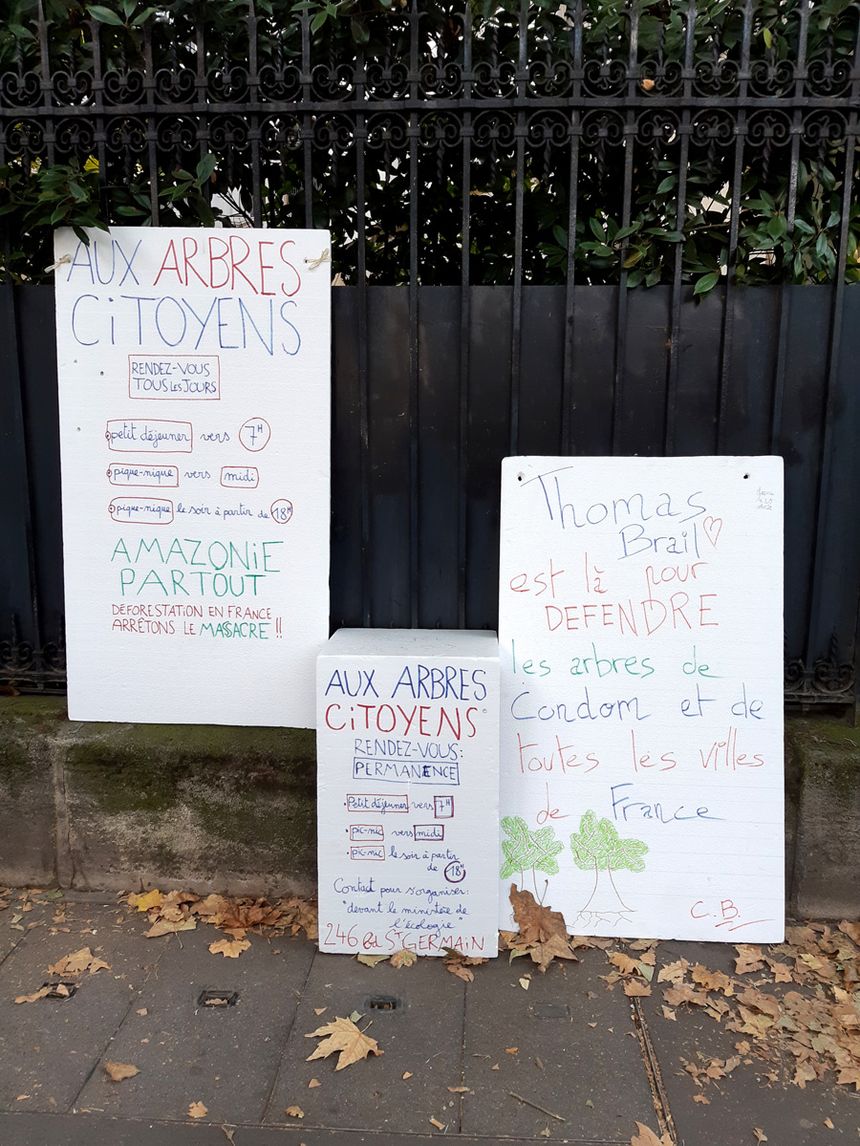 AUX ARBRES
CiTOYENS
RENDEZ-VOUS
TOUS LES JOURS
petit déjeuner vers 7H
pique-nique vers midi
pique-nique le soir à partir de 18H
AMAZONiE
PARTOUT
DÉFORESTATION EN FRANCE
ARRÊTONS LE MASSACRE !!
AUX ARBRES
CiTOYENS
RENDEZ-VOUS:
PERMANENCE
• Petit déjeuner vers 7H
• pic-nic vers midi
• pic-nic le soir à partir
de 18H
Contact pour s'organiser:
"devant le ministère de
l'écologie
246 Bd ST GERMAIN
Thomas
Brail
est là pour
DEFENDRE
les arbres de
Condom et de
toutes les villes
de France
C.B.